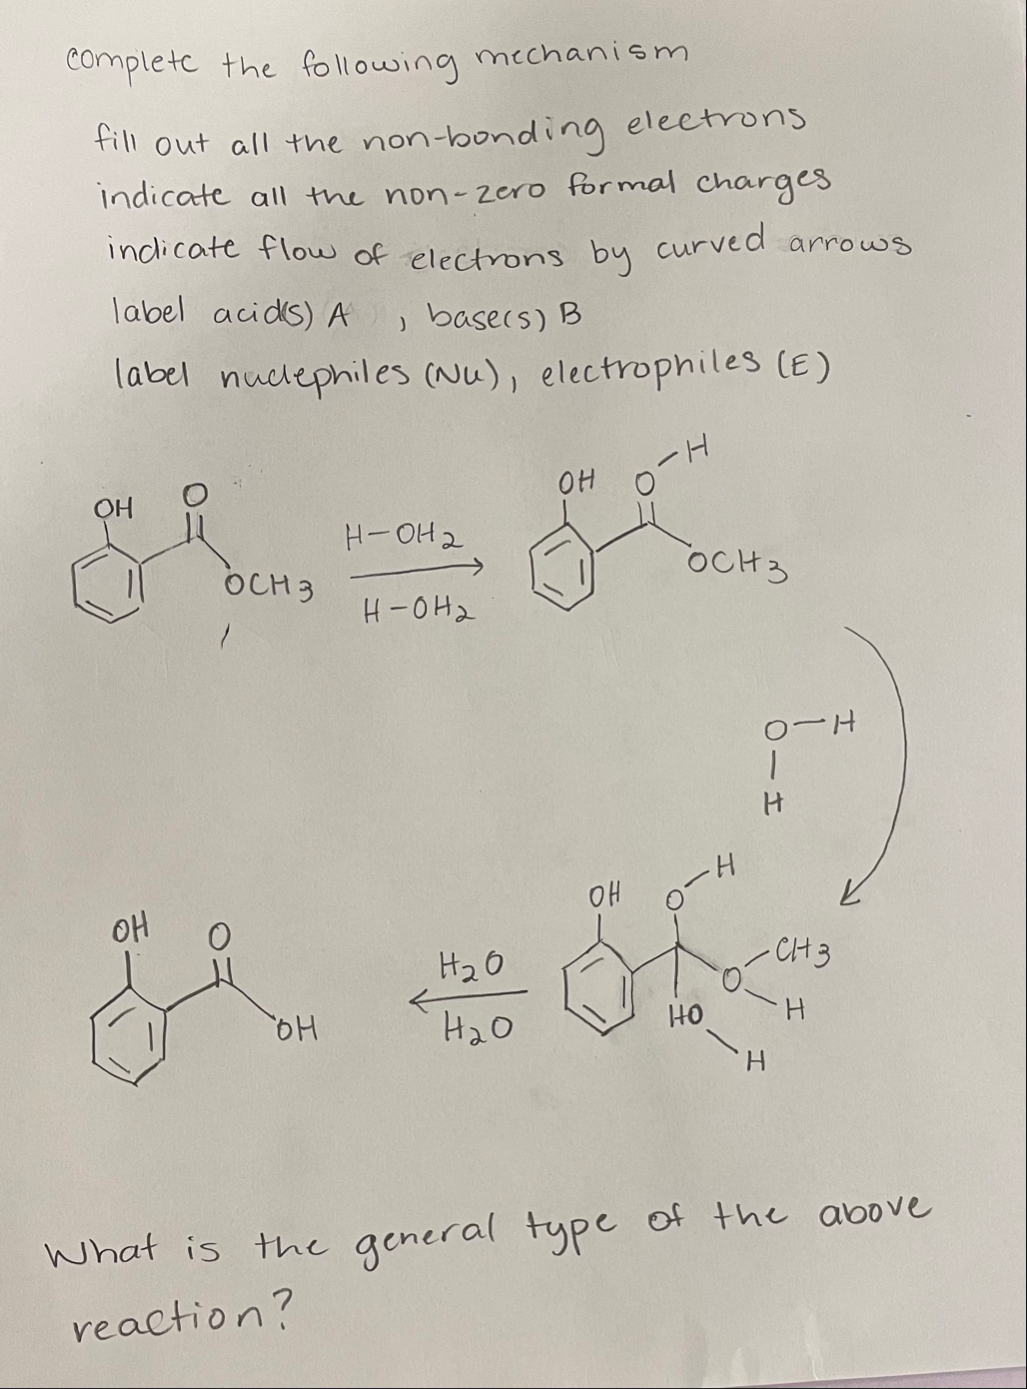 complete the following mechanism
fill out all the non-bonding electrons
indicate all the non-zero formal charges
indicate flow of electrons by curved arrows
label acid(s) A , base(s) B
label nuclephiles (Nu), electrophiles (E)
OH O OCH3
H-OH2
H-OH2
OH O-H OCH3
O-H
H
OH O-H O-CH3 H HO H
H2O
H2O
OH O OH
What is the general type of the above
reaction?